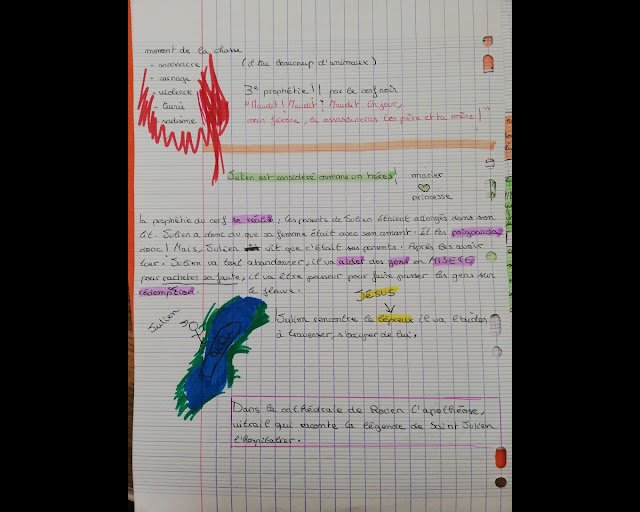 moment de la chasse
(il tue beaucoup d'animaux)
- massacre
- carnage
- violence
- tuerie
- sadisme
3e prophétie !! par le cerf noir
"Maudit! Maudit! Maudit! Un jour,
cœur féroce, tu assassineras ton père et ta mère!"
Julien est considéré comme un héros!
marier
princesse
la prophétie du cerf se réalise, les parents de Julien étaient allongés dans son
lit. Julien a donc cru que sa femme était avec son amant. Il les poignarda
donc! Mais, Julien vit que c'était ses parents. Après les avoir
tuer. Julien va tout abandonner, il va aider des gens en MISERE
pour racheter sa faute, il va être passeur pour faire passer les gens sur
rédemption. le fleuve.
JÉSUS
Julien
Julien rencontre le lépreux il va l'aider
à traverser, s'occuper de lui.
Dans la cathédrale de Rouen l'apothéose,
vitrail qui raconte la légende de Saint Julien
l'hospitalier.